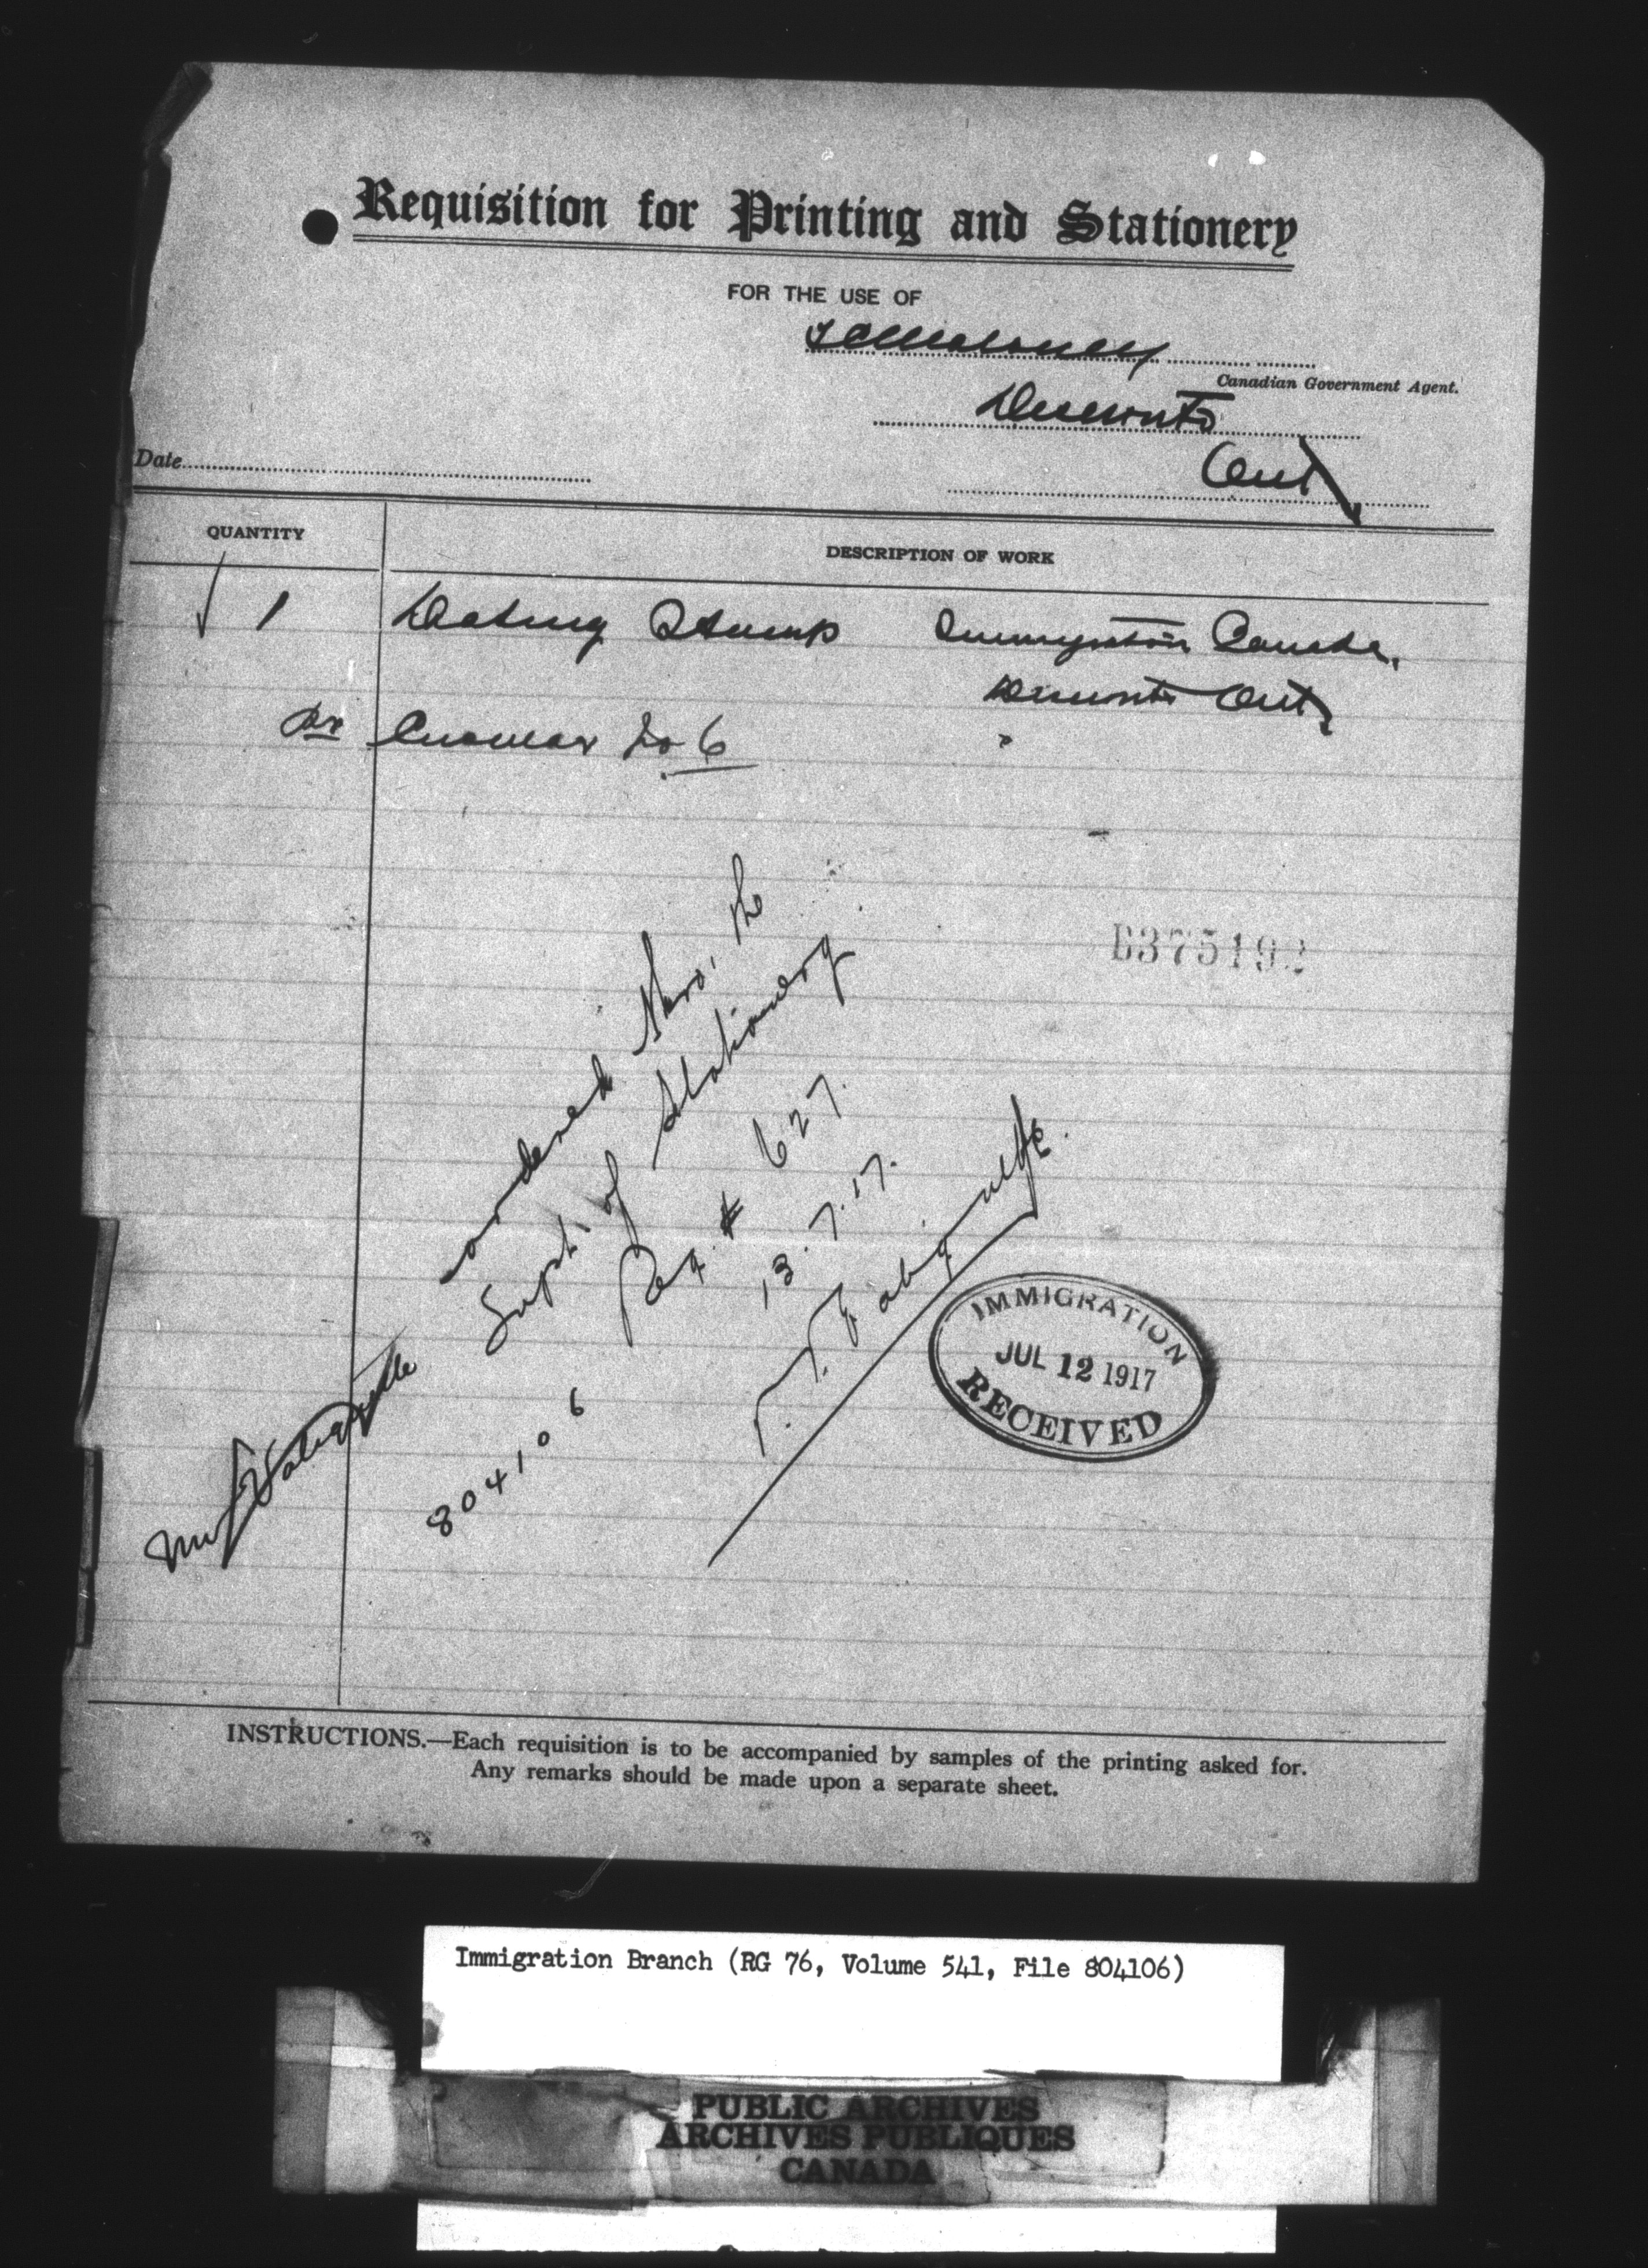 Requisition for Printing and Stationery
FOR THE USE OF
Maloney
Canadian Government Agent.
Deseronto
Ont
Date
QUANTITY
DESCRIPTION OF WORK
1 Dating Stamp Immigration Canada,
Deseronto Ont
Circular No 6
B375192
ordered thro' the
Supt. of Stationery
Req. # 627.
13.7.17.
804106
IMMIGRATION
JUL 12 1917
RECEIVED
INSTRUCTIONS.—Each requisition is to be accompanied by samples of the printing asked for.
Any remarks should be made upon a separate sheet.
Immigration Branch (RG 76, Volume 541, File 804106)
PUBLIC ARCHIVES
ARCHIVES PUBLIQUES
CANADA